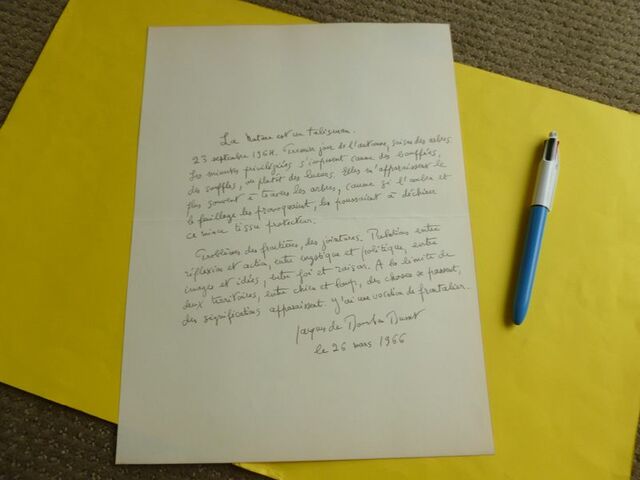 La Nature est un talisman.
23 septembre 1964. Premier jour de l'automne, saison des arbres.
Les minutes privilégiées s'imposent comme des bouffées,
des souffles, ou plutôt des lueurs. Elles m'apparaissent le
plus souvent à travers les arbres, comme si l'ombre et
le feuillage les provoquaient, les poussaient à déchirer
ce mince tissu protecteur.
Problèmes des frontières, des jointures. Relations entre
réflexion et action, entre mystique et politique, entre
images et idées, entre foi et raison. A la limite de
deux territoires, entre chien et loup, des choses se passent,
des significations apparaissent. J'ai une vocation de frontalier.
Jacques de Bourbon Busset
le 26 mars 1966